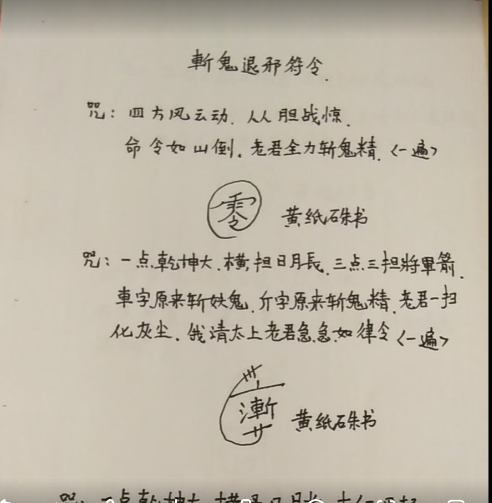 斬鬼退邪符令.
咒：四方风云动．人人胆战惊．
命令如山倒．老君全力斩鬼精．<一遍>
零 黄纸硃书
咒：一点乾坤大．横担日月長．三点三担將軍箭．
車字原来斩妖鬼．斤字原来斩鬼精．老君一扫
化灰尘．我请太上老君急急如律令<一遍>
黄纸硃书